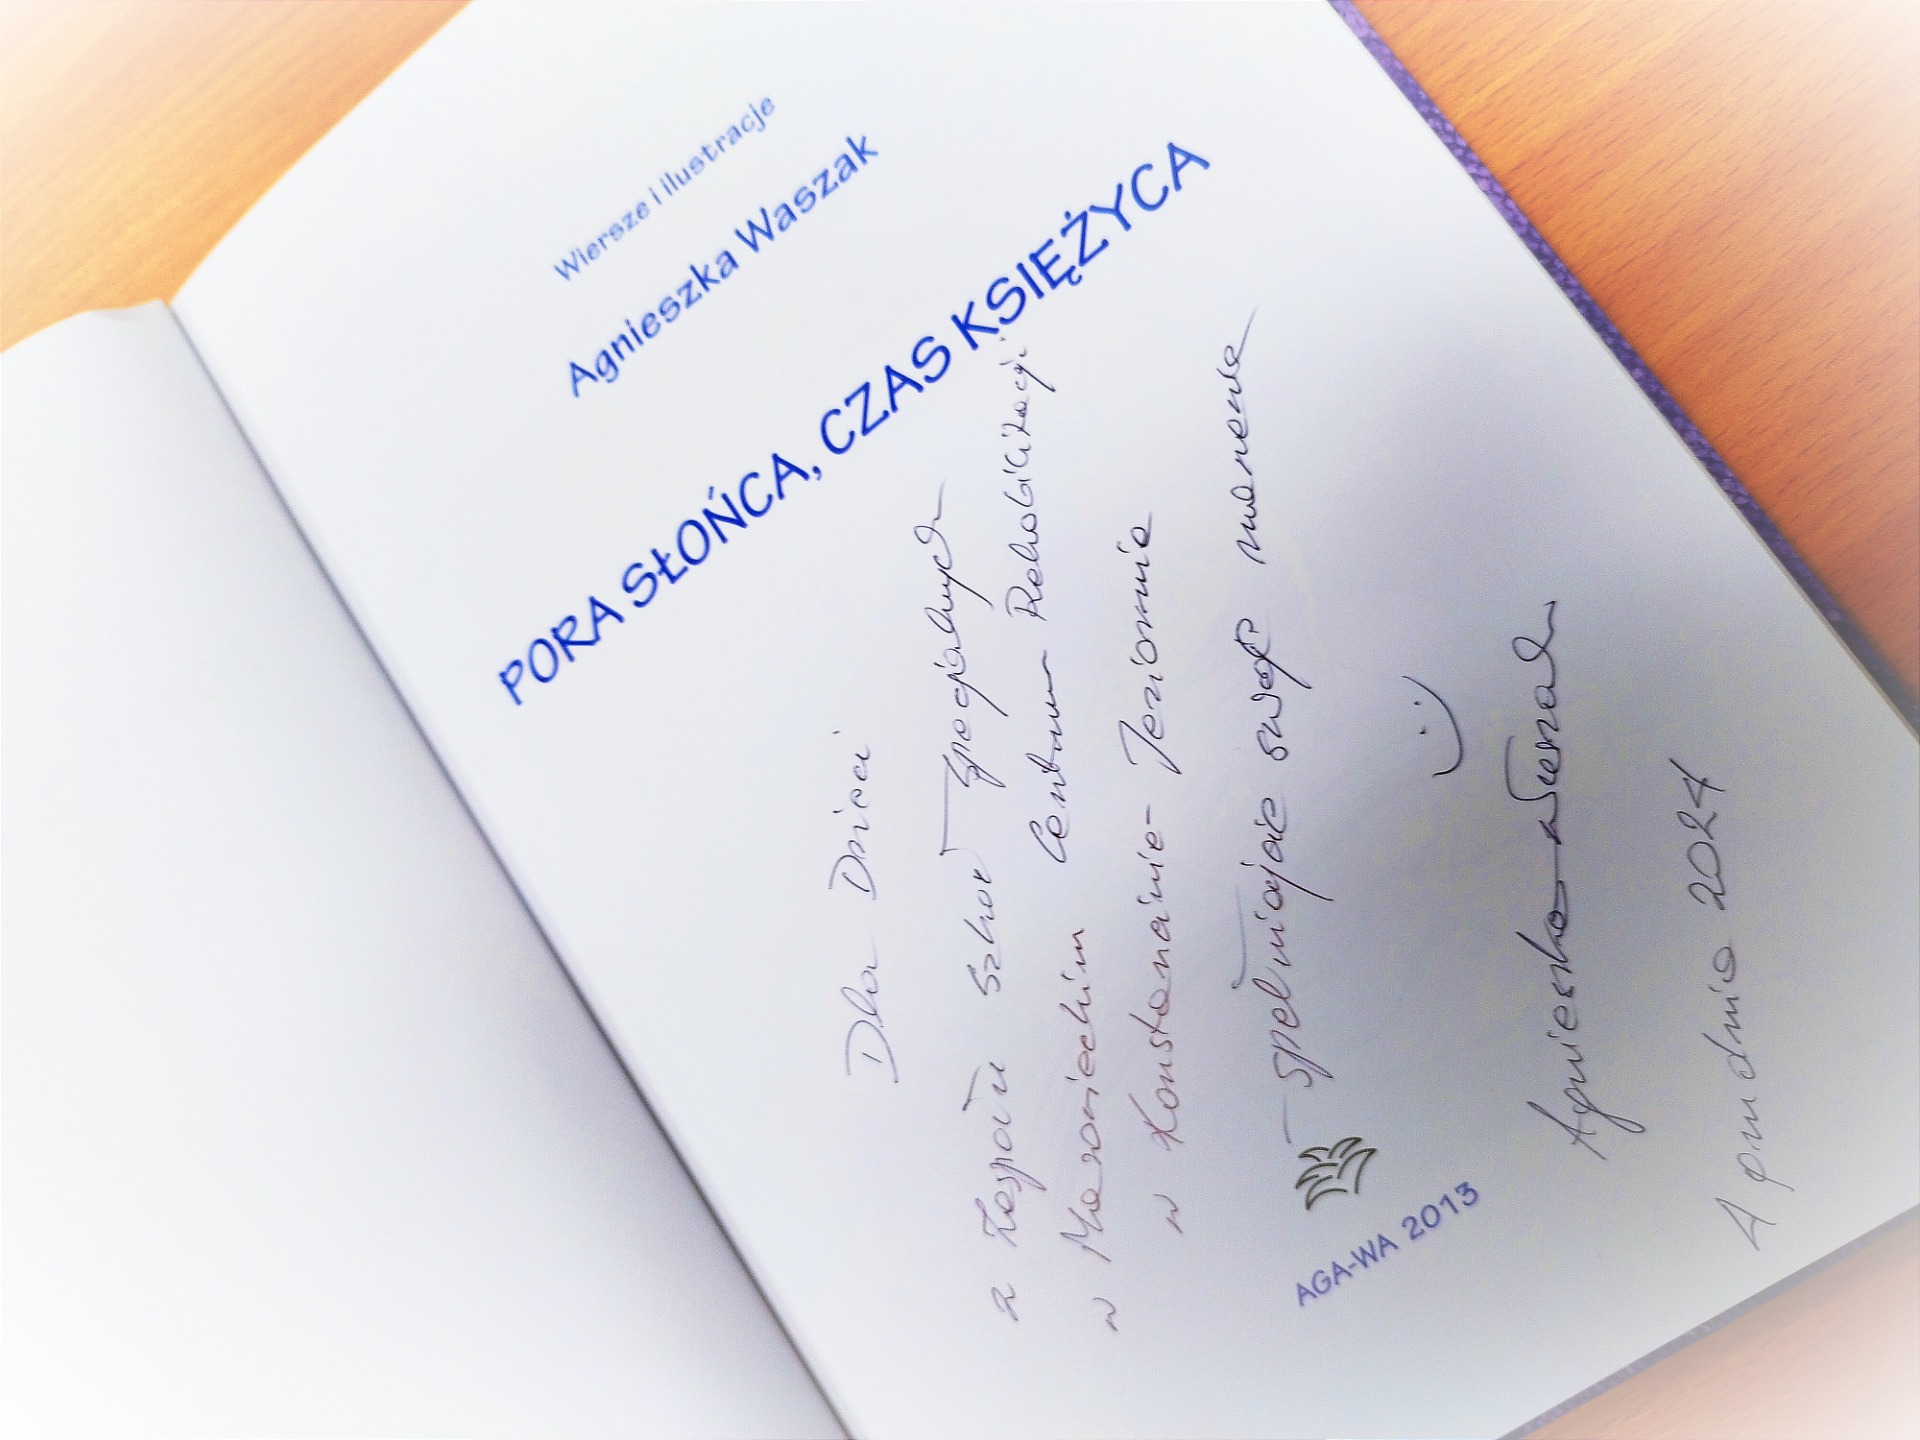 Wiersze i ilustracje
Agnieszka Waszak
PORA SŁOŃCA, CZAS KSIĘŻYCA
Dla Dzieci
z Zespołu Szkół Specjalnych
w Mazowieckim Centrum Rehabilitacji
w Konstancinie-Jeziornie
- spełniajcie swoje marzenia
:)
Agnieszka Waszak
4 grudnia 2024
AGA-WA 2013